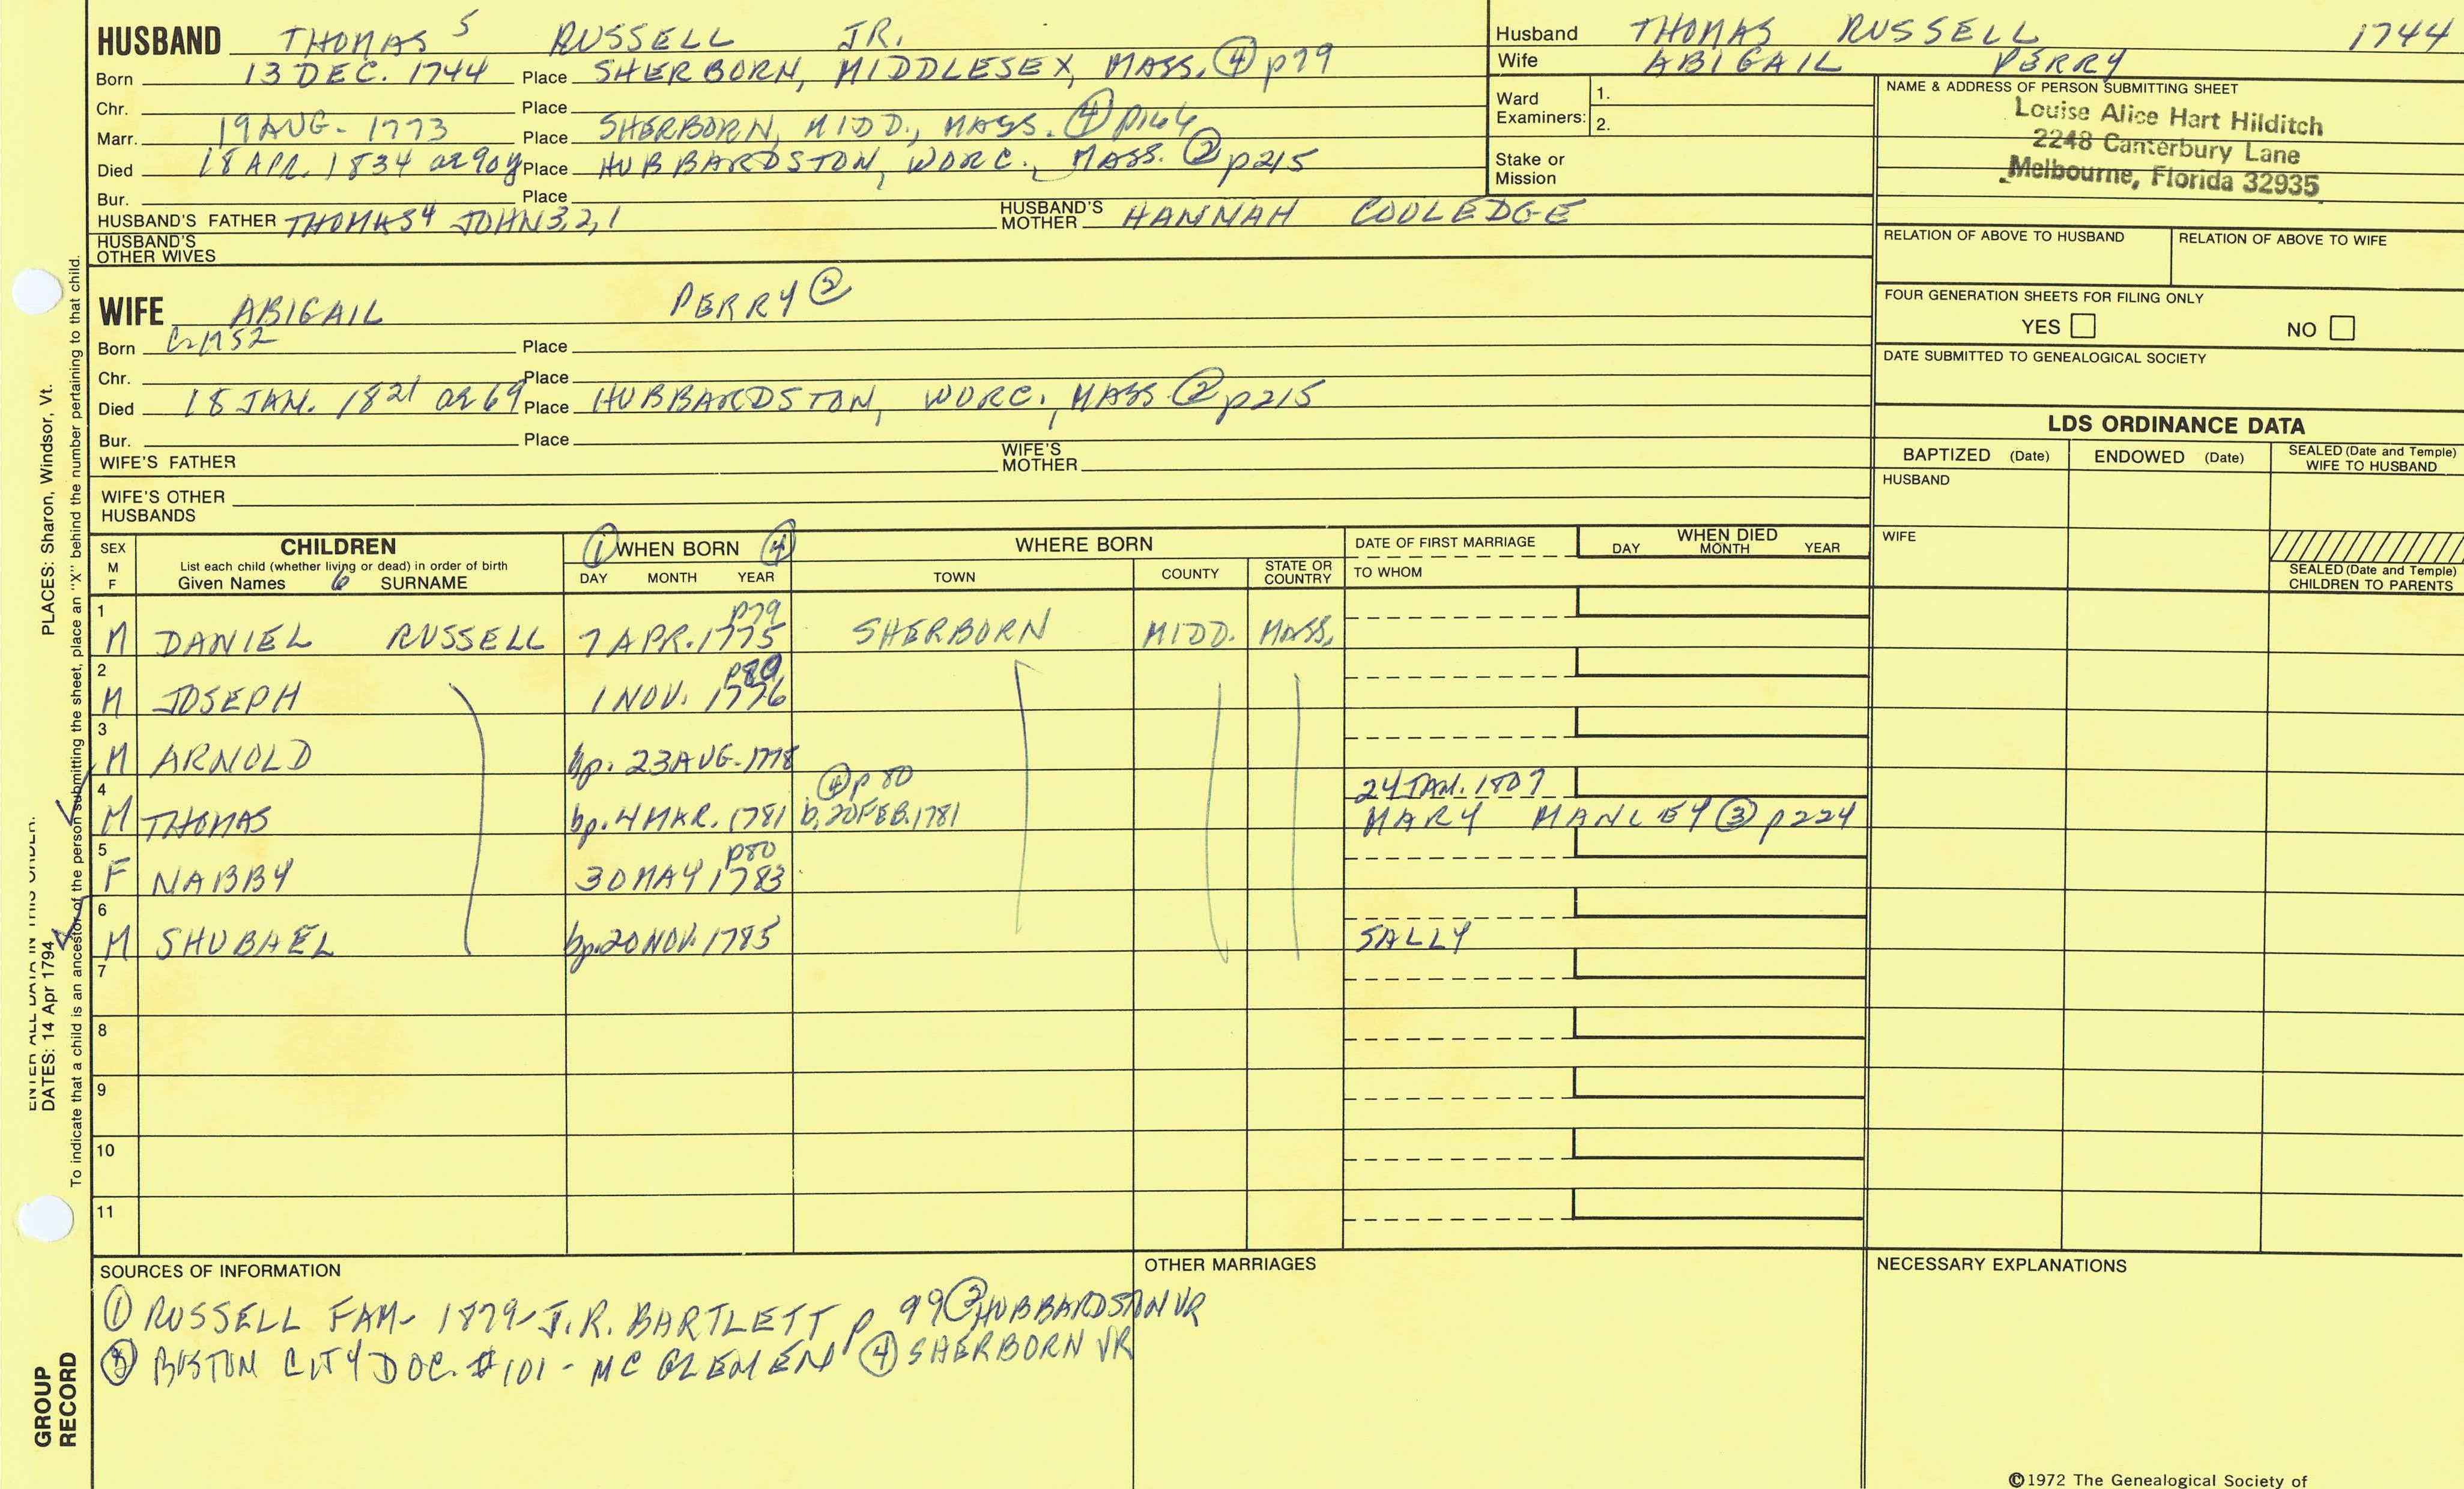 HUSBAND THOMAS 5 RUSSELL JR.
Born 13 DEC. 1744 Place SHERBORN, MIDDLESEX, MASS. ④ p79
Chr. Place
Marr. 19 AUG. 1773 Place SHERBORN, MIDD., MASS. ④ p166
Died 18 APR. 1834 ae 90y Place HUBBARDSTON, WORC., MASS. ② p215
Bur. Place
HUSBAND'S FATHER THOMAS 4 JOHN 3,2,1 HUSBAND'S MOTHER HANNAH COOLEDGE
HUSBAND'S OTHER WIVES
Husband THOMAS RUSSELL 1744
Wife ABIGAIL PERRY
Ward Examiners: 1.
2.
Stake or Mission
NAME & ADDRESS OF PERSON SUBMITTING SHEET
Louise Alice Hart Hilditch
2248 Canterbury Lane
Melbourne, Florida 32935
RELATION OF ABOVE TO HUSBAND RELATION OF ABOVE TO WIFE
FOUR GENERATION SHEETS FOR FILING ONLY
YES NO
DATE SUBMITTED TO GENEALOGICAL SOCIETY
WIFE ABIGAIL PERRY ②
Born C-1752 Place
Chr. Place
Died 18 JAN. 1821 ae 69 Place HUBBARDSTON, WORC., MASS ② p215
Bur. Place
WIFE'S FATHER WIFE'S MOTHER
WIFE'S OTHER HUSBANDS
LDS ORDINANCE DATA
BAPTIZED (Date) ENDOWED (Date) SEALED (Date and Temple) WIFE TO HUSBAND
HUSBAND
WIFE
SEALED (Date and Temple) CHILDREN TO PARENTS
SEX M F CHILDREN ① WHEN BORN ④ WHERE BORN DATE OF FIRST MARRIAGE WHEN DIED
List each child (whether living or dead) in order of birth
Given Names 6 SURNAME DAY MONTH YEAR TOWN COUNTY STATE OR COUNTRY TO WHOM DAY MONTH YEAR
1 p79
M DANIEL RUSSELL 7 APR. 1775 SHERBORN MIDD. MASS.
2 p80
M JOSEPH 1 NOV. 1776
3
M ARNOLD bp. 23 AUG. 1778
4 ④ p80 24 JAN. 1807
M THOMAS bp. 4 MAR. 1781 b. 20 FEB. 1781 MARY MANLEY ③ p224
5 p80
F NABBY 30 MAY 1783
6
M SHUBAEL bp. 20 NOV. 1785 SALLY
7
8
9
10
11
SOURCES OF INFORMATION
① RUSSELL FAM- 1879- J.R. BARTLETT p 99 ② HUBBARDSTON VR
③ BOSTON CITY DOC. #101 - MC GLENEN ④ SHERBORN VR
OTHER MARRIAGES
NECESSARY EXPLANATIONS
©1972 The Genealogical Society of
PLACES: Sharon, Windsor, Vt.
ENTER ALL DATA IN THIS ORDER:
DATES: 14 Apr 1794
To indicate that a child is an ancestor of the person submitting the sheet, place an "X" behind the number pertaining to that child.
GROUP RECORD